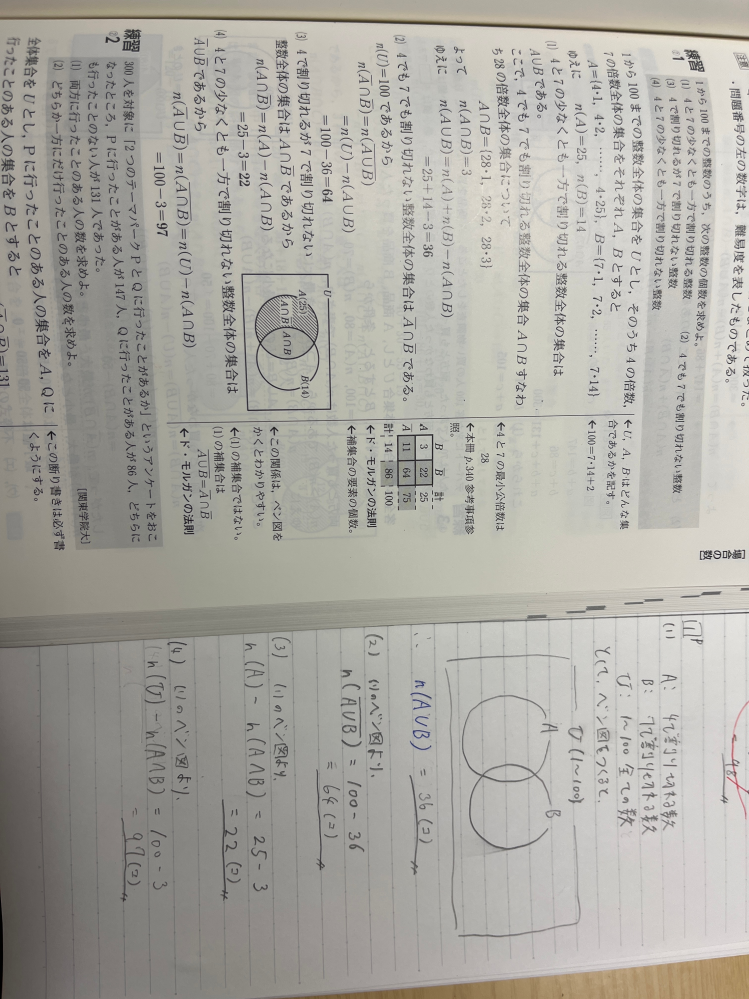 注意
・問題番号の左の数字は,難易度を表したものである。
[場合の数]
練習
②1
1から100までの整数のうち,次の整数の個数を求めよ。
(1) 4と7の少なくとも一方で割り切れる整数
(2) 4でも7でも割り切れない整数
(3) 4で割り切れるが7で割り切れない整数
(4) 4と7の少なくとも一方で割り切れない整数
1から100までの整数全体の集合をUとし,そのうち4の倍数,
7の倍数全体の集合をそれぞれA,Bとすると
A={4・1, 4・2, ……, 4・25}, B={7・1, 7・2, ……, 7・14}
ゆえに n(A)=25, n(B)=14
←U,A,Bはどんな集合であるかを記す。
←100=7・14+2
(1) 4と7の少なくとも一方で割り切れる整数全体の集合は
A∪Bである。
ここで,4でも7でも割り切れる整数全体の集合A∩Bすなわ
ち28の倍数全体の集合について
A∩B={28・1, 28・2, 28・3}
よって n(A∩B)=3
ゆえに n(A∪B)=n(A)+n(B)-n(A∩B)
=25+14-3=36
←4と7の最小公倍数は
28
(2) 4でも7でも割り切れない整数全体の集合は A̅∩B̅ である。
n(U)=100であるから
n(A̅∩B̅)=n(A∪B の補集合)
=n(U)-n(A∪B)
=100-36=64
←本冊 p.340 参考事項参
照。
B B̅ 計
A 3 22 25
A̅ 11 64 75
計 14 86 100
←ド・モルガンの法則
←補集合の要素の個数。
(3) 4で割り切れるが7で割り切れない
整数全体の集合は A∩B̅ であるから
n(A∩B̅)=n(A)-n(A∩B)
=25-3=22
U
A(25)
A∩B̅
A∩B
B(14)
←この関係は,ベン図を
かくとわかりやすい。
(4) 4と7の少なくとも一方で割り切れない整数全体の集合は
A̅∪B̅であるから
n(A̅∪B̅)=n(A∩B の補集合)=n(U)-n(A∩B)
=100-3=97
←(1)の補集合ではない。
(1)の補集合は
←ド・モルガンの法則
練習
②2
300人を対象に「2つのテーマパークPとQに行ったことがあるか」というアンケートをおこ
なったところ,Pに行ったことがある人が147人,Qに行ったことがある人が86人,どちらに
も行ったことのない人が131人であった。
(1) 両方に行ったことのある人の数を求めよ。
(2) どちらか一方にだけ行ったことのある人の数を求めよ。
[関東学院大]
全体集合をUとし,Pに行ったことのある人の集合をA,Qに
行ったことのある人の集合をBとすると
←この断り書きは必ず書
くようにする。
(1) A: 4で割り切れる数
B: 7で割り切れる数
U: 1~100全ての数
として、ベン図をつくると、
U(1~100)
A
B
∴ n(A∪B) = 36(コ)
(2) (1)のベン図より、
n(A∪B の補集合) = 100 - 36
= 64(コ)
(3) (1)のベン図より、
n(A) - n(A∩B) = 25 - 3
= 22(コ)
(4) (1)のベン図より、
n(U) - n(A∩B) = 100 - 3
= 97(コ)